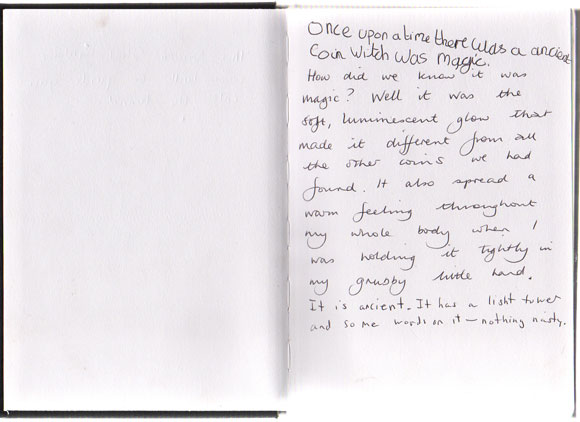 Once upon a time there was a ancient
Coin Witch was magic.
How did we know it was
magic? Well it was the
soft, luminescent glow that
made it different from all
the other coins we had
found. It also spread a
warm feeling throughout
my whole body when I
was holding it tightly in
my grubby little hand.
It is ancient. It has a light tower
and some words on it – nothing nasty.